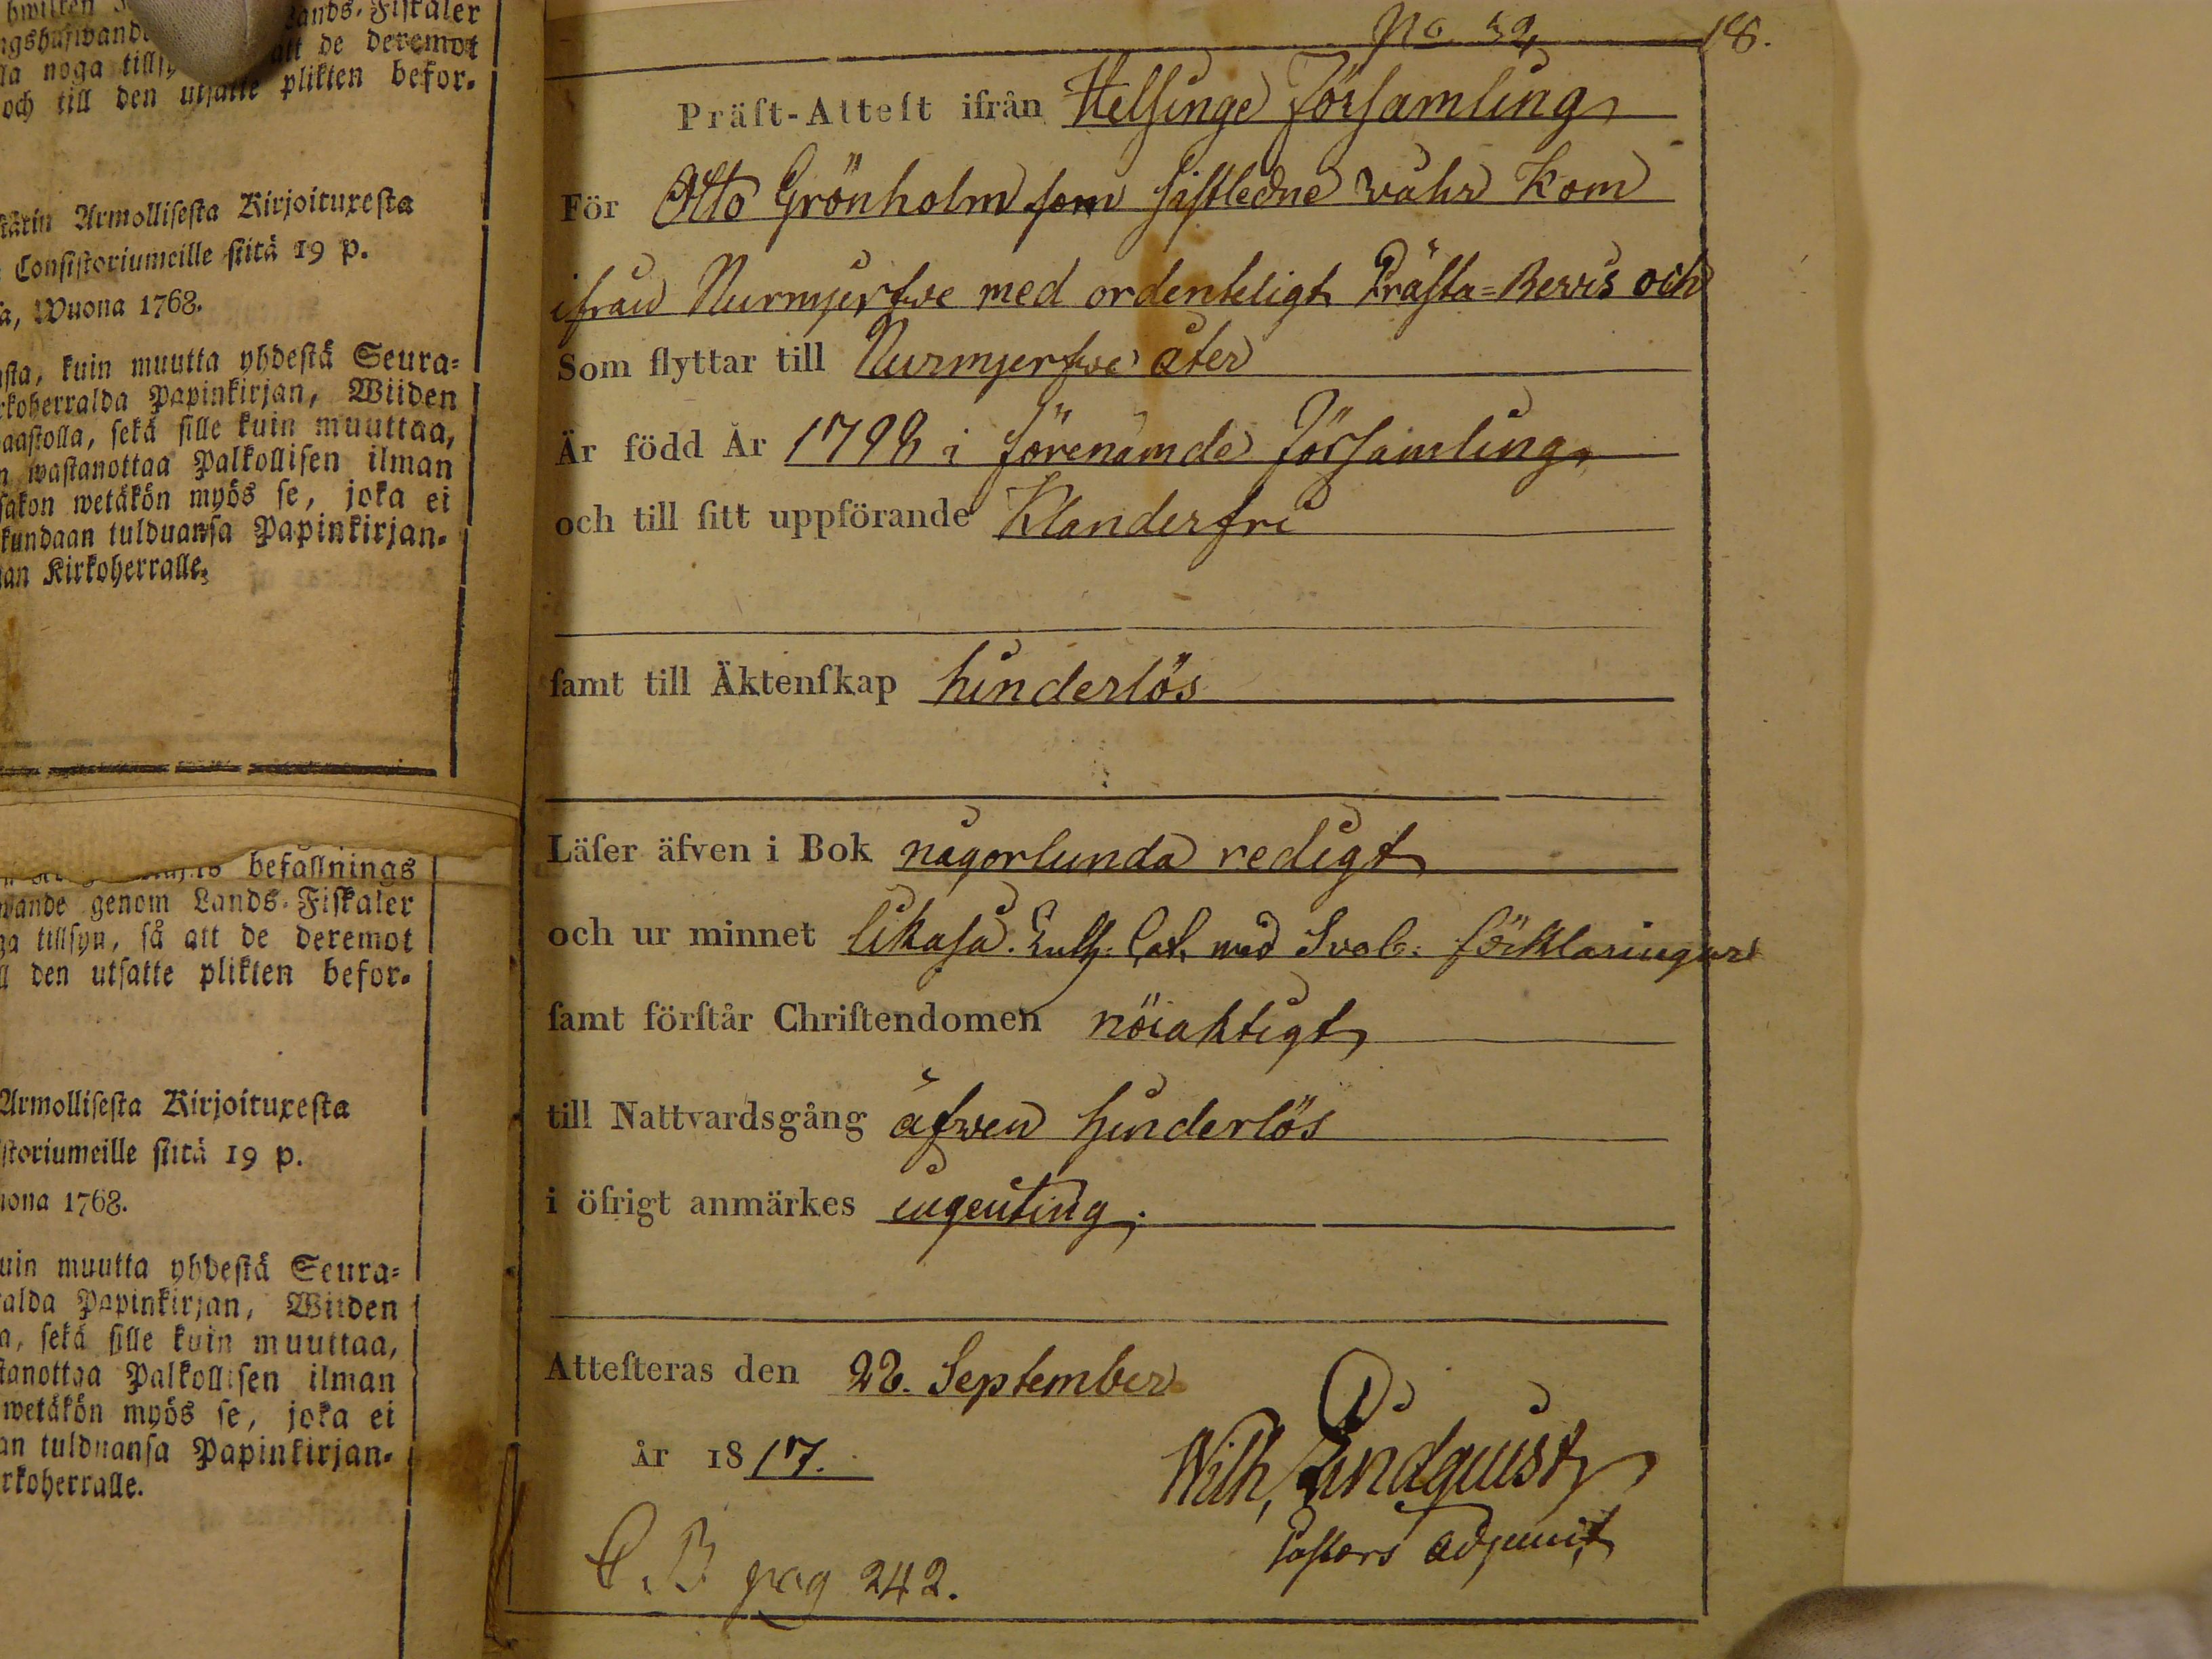 Lands-Fiskaler
de deremot
noga
och till den utsatte plikten befor-
Armollisesta Kirjoituxesta
Consistoriumeille siitä 19 p.
Wuona 1768.
kuin muutta yhdestä Seura-
Papinkirjan, Wiiden
sekä sille kuin muuttaa,
wastanottaa Palkollisen ilman
wetäkön myös se, joka ei
tulduansa Papinkirjan-
Kirkoherralle.
befallnings
genom Lands-Fiskaler
tillsyn, så att de deremot
den utsatte plikten befor-
Armollisesta Kirjoituxesta
siitä 19 p.
1768.
muutta yhdestä Seura-
Papinkirjan, Wiiden
sekä sille kuin muuttaa,
Palkollisen ilman
wetäkön myös se, joka ei
tulduansa Papinkirjan-
No 18.
Präst-Attest ifrån Helsinge Församling
För Otto Grönholm som sistledne våhr kom
ifrån Nurmjerfwe med ordenteligt Prästa-Bewis och
Som flyttar till Nurmjerfwe åter
Är född År 1798 i förenämde församling,
och till sitt uppförande Klanderfri
samt till Äktenskap hinderlös
Läser äfven i Bok någorlunda redigt
och ur minnet likaså. Luth: Cat. med Sveb: förklaringar
samt förstår Christendomen nöiaktigt
till Nattvardsgång äfwen hinderlös
i öfrigt anmärkes ingenting.
Attesteras den 22. September
år 1817.
Wilh, Lindquist
Pastors Adjunct
C. B pag 242.